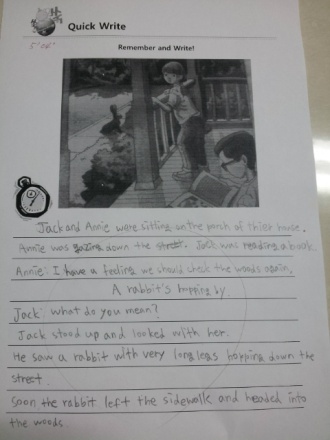 Quick Write
5'06"
Remember and Write!
Jack and Annie were sitting on the porch of thier house.
Annie was gazing down the street. Jack was reading a book.
Annie: I have a feeling we should check the woods again.
A rabbit's hopping by
Jack: what do you mean?
Jack stood up and looked with her.
He saw a rabbit with very long legs hopping down the
street.
Soon the rabbit left the sidewalk and headed into
the woods.